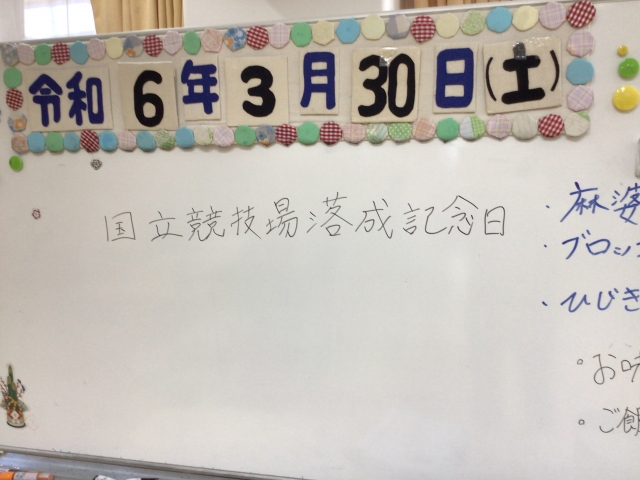 令和6年3月30日(土)
国立競技場落成記念日
・麻婆
・ブロッコ
・ひじき
・お味
・ご飯